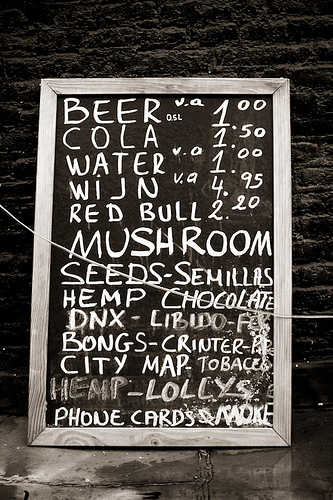 BEER 0.5L v.a 1.00
COLA 1.50
WATER v.a 1.00
WIJN v.a 4.95
RED BULL 2.20
MUSHROOM
SEEDS-SEMILLAS
HEMP CHOCOLATE
DNX - LIBIDO-
BONGS-CRINTER-
CITY MAP-TOBACE
HEMP-LOLLYS
PHONE CARDS & SMOKE